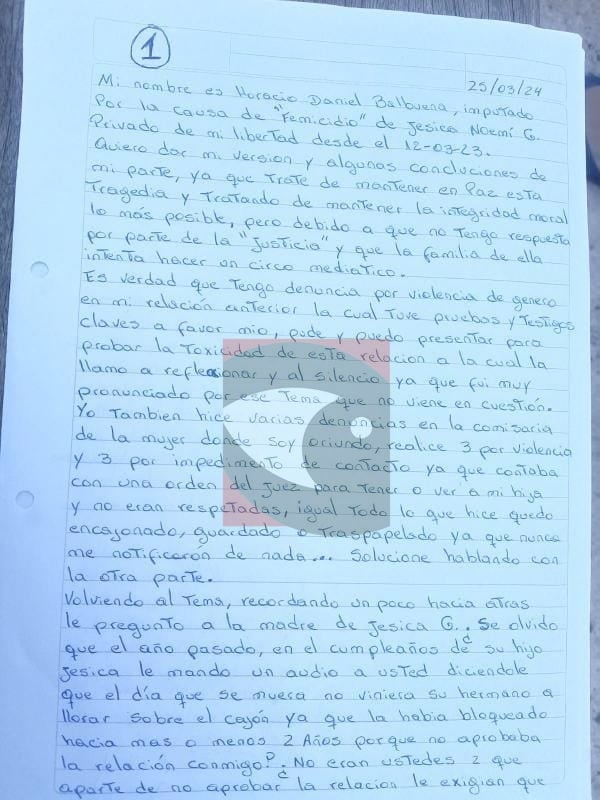 1
25/03/24
Mi nombre es Horacio Daniel Balbuena, imputado
Por la causa de "Femicidio" de Jesica Noemí G.
Privado de mi libertad desde el 12-03-23.
Quiero dar mi version y algunas concluciones de
mi parte, ya que trate de mantener en Paz esta
tragedia y tratando de mantener la integridad moral
lo más posible, pero debido a que no tengo respuesta
por parte de la "justicia" y que la familia de ella
intenta hacer un circo mediatico.
Es verdad que tengo denuncia por violencia de genero
en mi relación anterior la cual tuve pruebas y testigos
claves a favor mio, pude y puedo presentar para
probar la toxicidad de esta relacion a la cual la
llamo a reflexionar y al silencio ya que fui muy
pronunciado por ese tema que no viene en cuestión.
Yo tambien hice varias denuncias en la comisaria
de la mujer donde soy oriundo, realice 3 por violencia
y 3 por impedimento de contacto ya que contaba
con una orden del juez para tener o ver a mi hija
y no eran respetadas, igual todo lo que hice quedo
encajonado, guardado o traspapelado ya que nunca
me notificaron de nada... Solucione hablando con
la otra parte.
Volviendo al tema, recordando un poco hacia atras
le pregunto a la madre de Jesica G.. Se olvido
que el año pasado, en el cumpleaños de su hijo
Jesica le mando un audio a usted diciendole
que el día que se muera no viniera su hermano a
llorar sobre el cajón ya que la habia bloqueado
hacia mas o menos 2 Años porque no aprobaba
la relación conmigo?. ¿No eran ustedes 2 que
aparte de no aprobar la relacion le exigian que